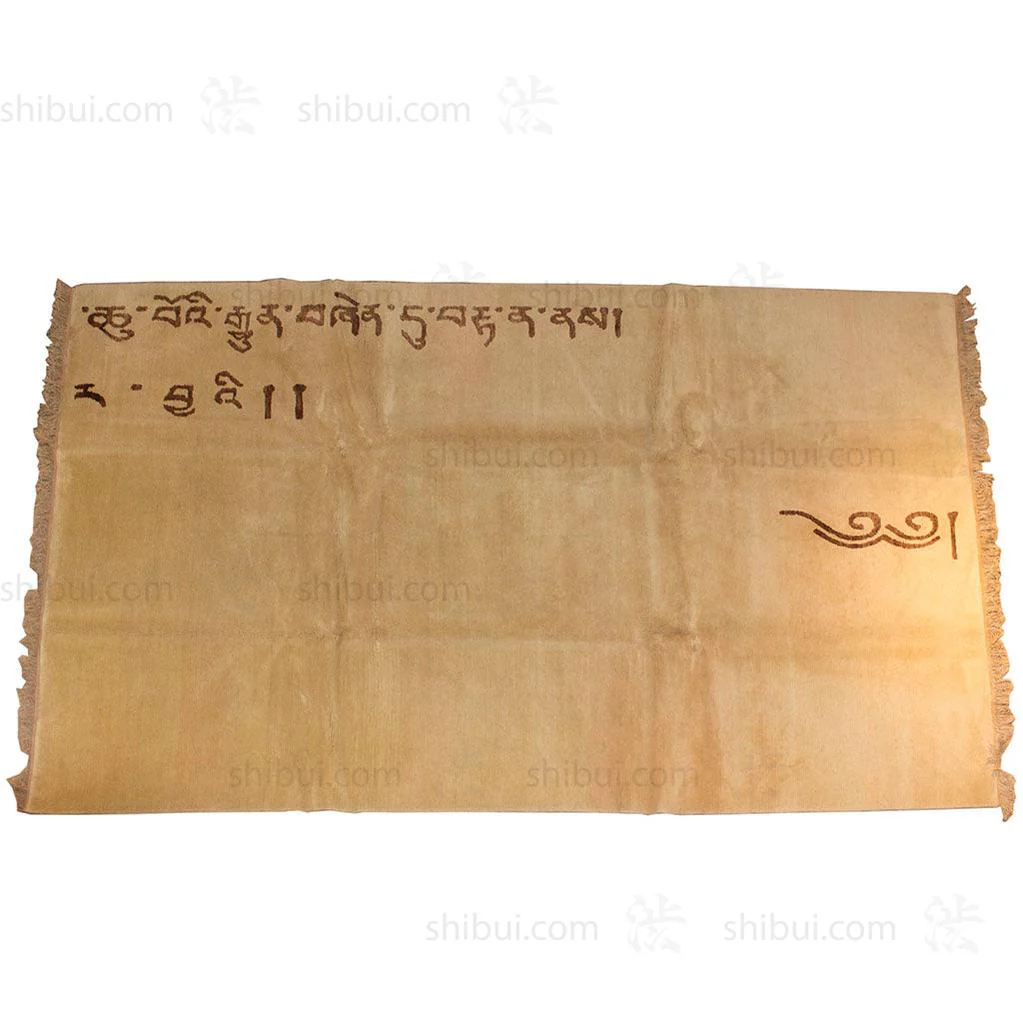 shibui.com 法 shibui.com 法
་ཆུ་བོའི་རྒྱུན་བཞིན་དུ་བརྟ་ན་ནས།
ར་ བྱའི།།
shibui.com shibui.com
༄༅།
shibui.com shibui.com
shibui.com shibui.com
shibui.com 法 shibui.com 法